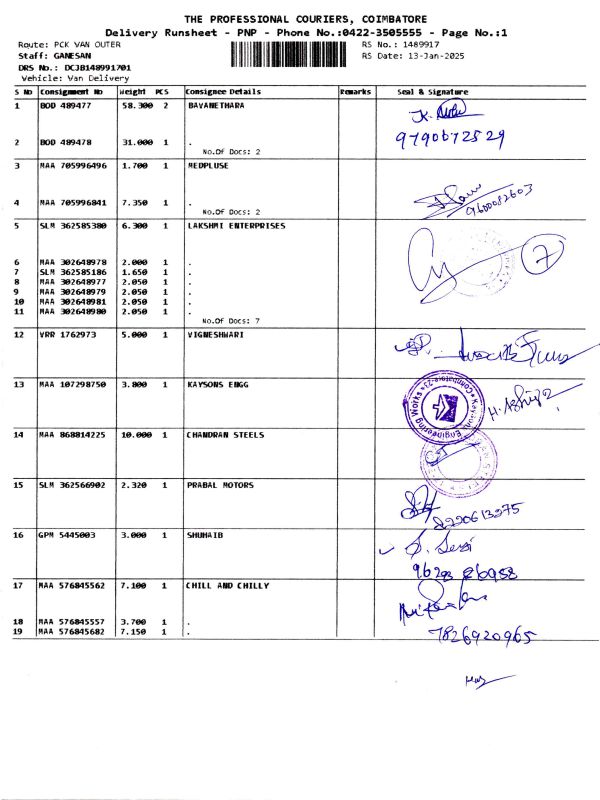 THE PROFESSIONAL COURIERS, COIMBATORE
Delivery Runsheet - PNP - Phone No.:0422-3505555 - Page No.:1
Route: PCK VAN OUTER RS No.: 1489917
Staff: GANESAN RS Date: 13-Jan-2025
DRS No.: DCJB148991701
Vehicle: Van Delivery
S No Consignment No Weight PCS Consignee Details Remarks Seal & Signature
1 BOD 489477 58.300 2 BAVANETHARA
2 BOD 489478 31.000 1 . 9790672529
No.Of Docs: 2
3 MAA 705996496 1.700 1 REDPLUSE
4 MAA 705996841 7.350 1 . 9600082603
No.Of Docs: 2
5 SLM 362585380 6.300 1 LAKSHMI ENTERPRISES
7
6 MAA 302648978 2.000 1 .
7 SLM 362585186 1.650 1 .
8 MAA 302648977 2.050 1 .
9 MAA 302648979 2.050 1 .
10 MAA 302648981 2.050 1 .
11 MAA 302648980 2.050 1 .
No.Of Docs: 7
12 VRR 1762973 5.000 1 VIGNESHWARI
13 MAA 107298750 3.800 1 KAYSONS ENGG
Kaysons Engineering Works Coimbatore-21
14 MAA 868814225 10.000 1 CHANDRAN STEELS
15 SLM 362566902 2.320 1 PRABAL MOTORS
8220613275
16 GPM 5445003 3.000 1 SHUHAIB
17 MAA 576845562 7.100 1 CHILL AND CHILLY
18 MAA 576845557 3.700 1 .
19 MAA 576845682 7.150 1 . 7826920965